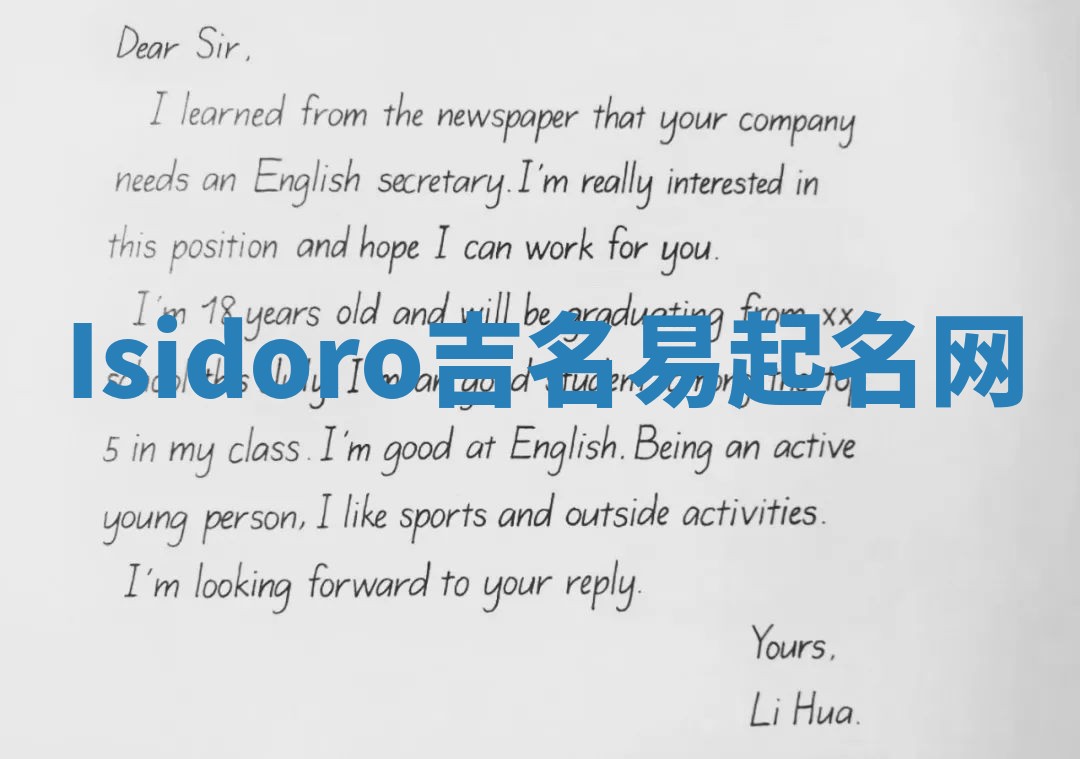 Dear Sir,
I learned from the newspaper that your company
needs an English secretary. I'm really interested in
this position and hope I can work for you.
I'm 18 years old and will be graduating from xx
Isidoro吉名易起名网
school this July. I'm a good student among the top
5 in my class. I'm good at English. Being an active
young person, I like sports and outside activities.
I'm looking forward to your reply.
Yours,
Li Hua.